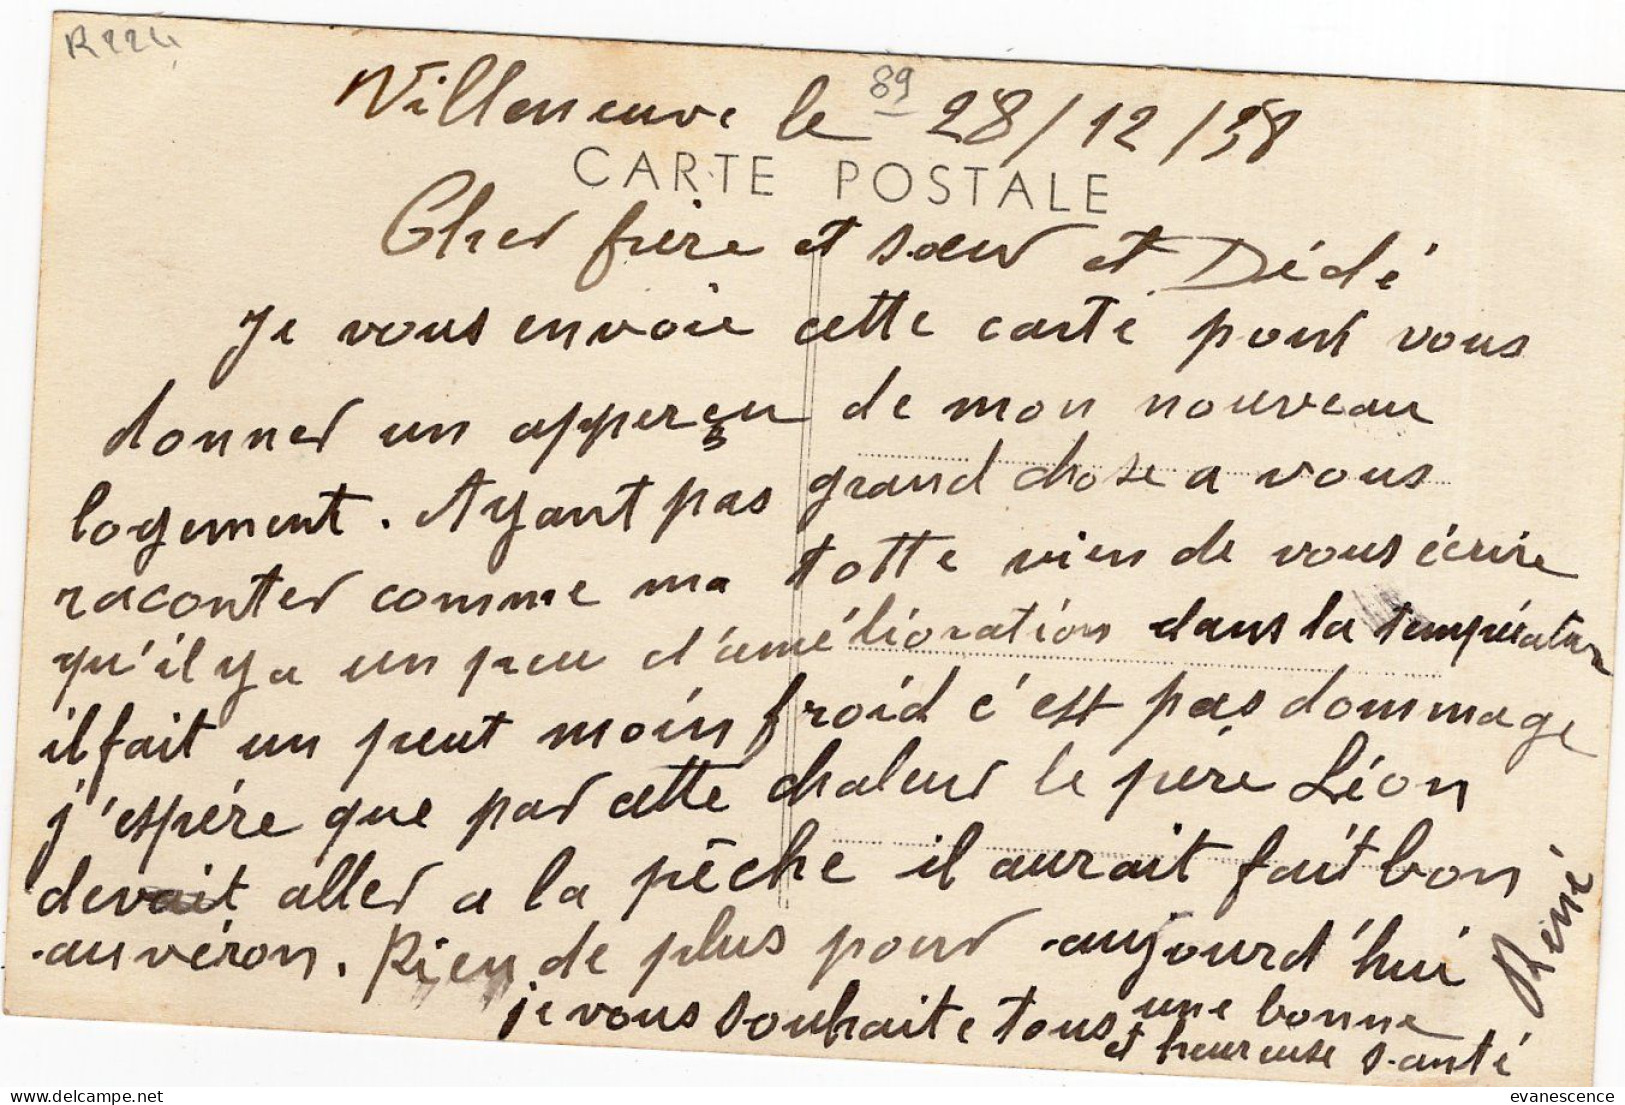 R224
Villeneuve le 89 28/12/38
CARTE POSTALE
Cher frère et sœur et Dédé
Je vous envoie cette carte pour vous
donner un apperçu de mon nouveau
logement. Ayant pas grand chose a vous
raconter comme ma totte vien de vous écrire
qu'il y a un peu d'amélioration dans la températur
il fait un peut moin froid c'est pas dommage
j'espére que par cette chaleur le père Léon
devait aller a la pêche il aurait fait bon
au véron. Rien de plus pour aujourd'hui
je vous souhaite tous une bonne
et heureuse santé
René
delcampe.net
evanescence